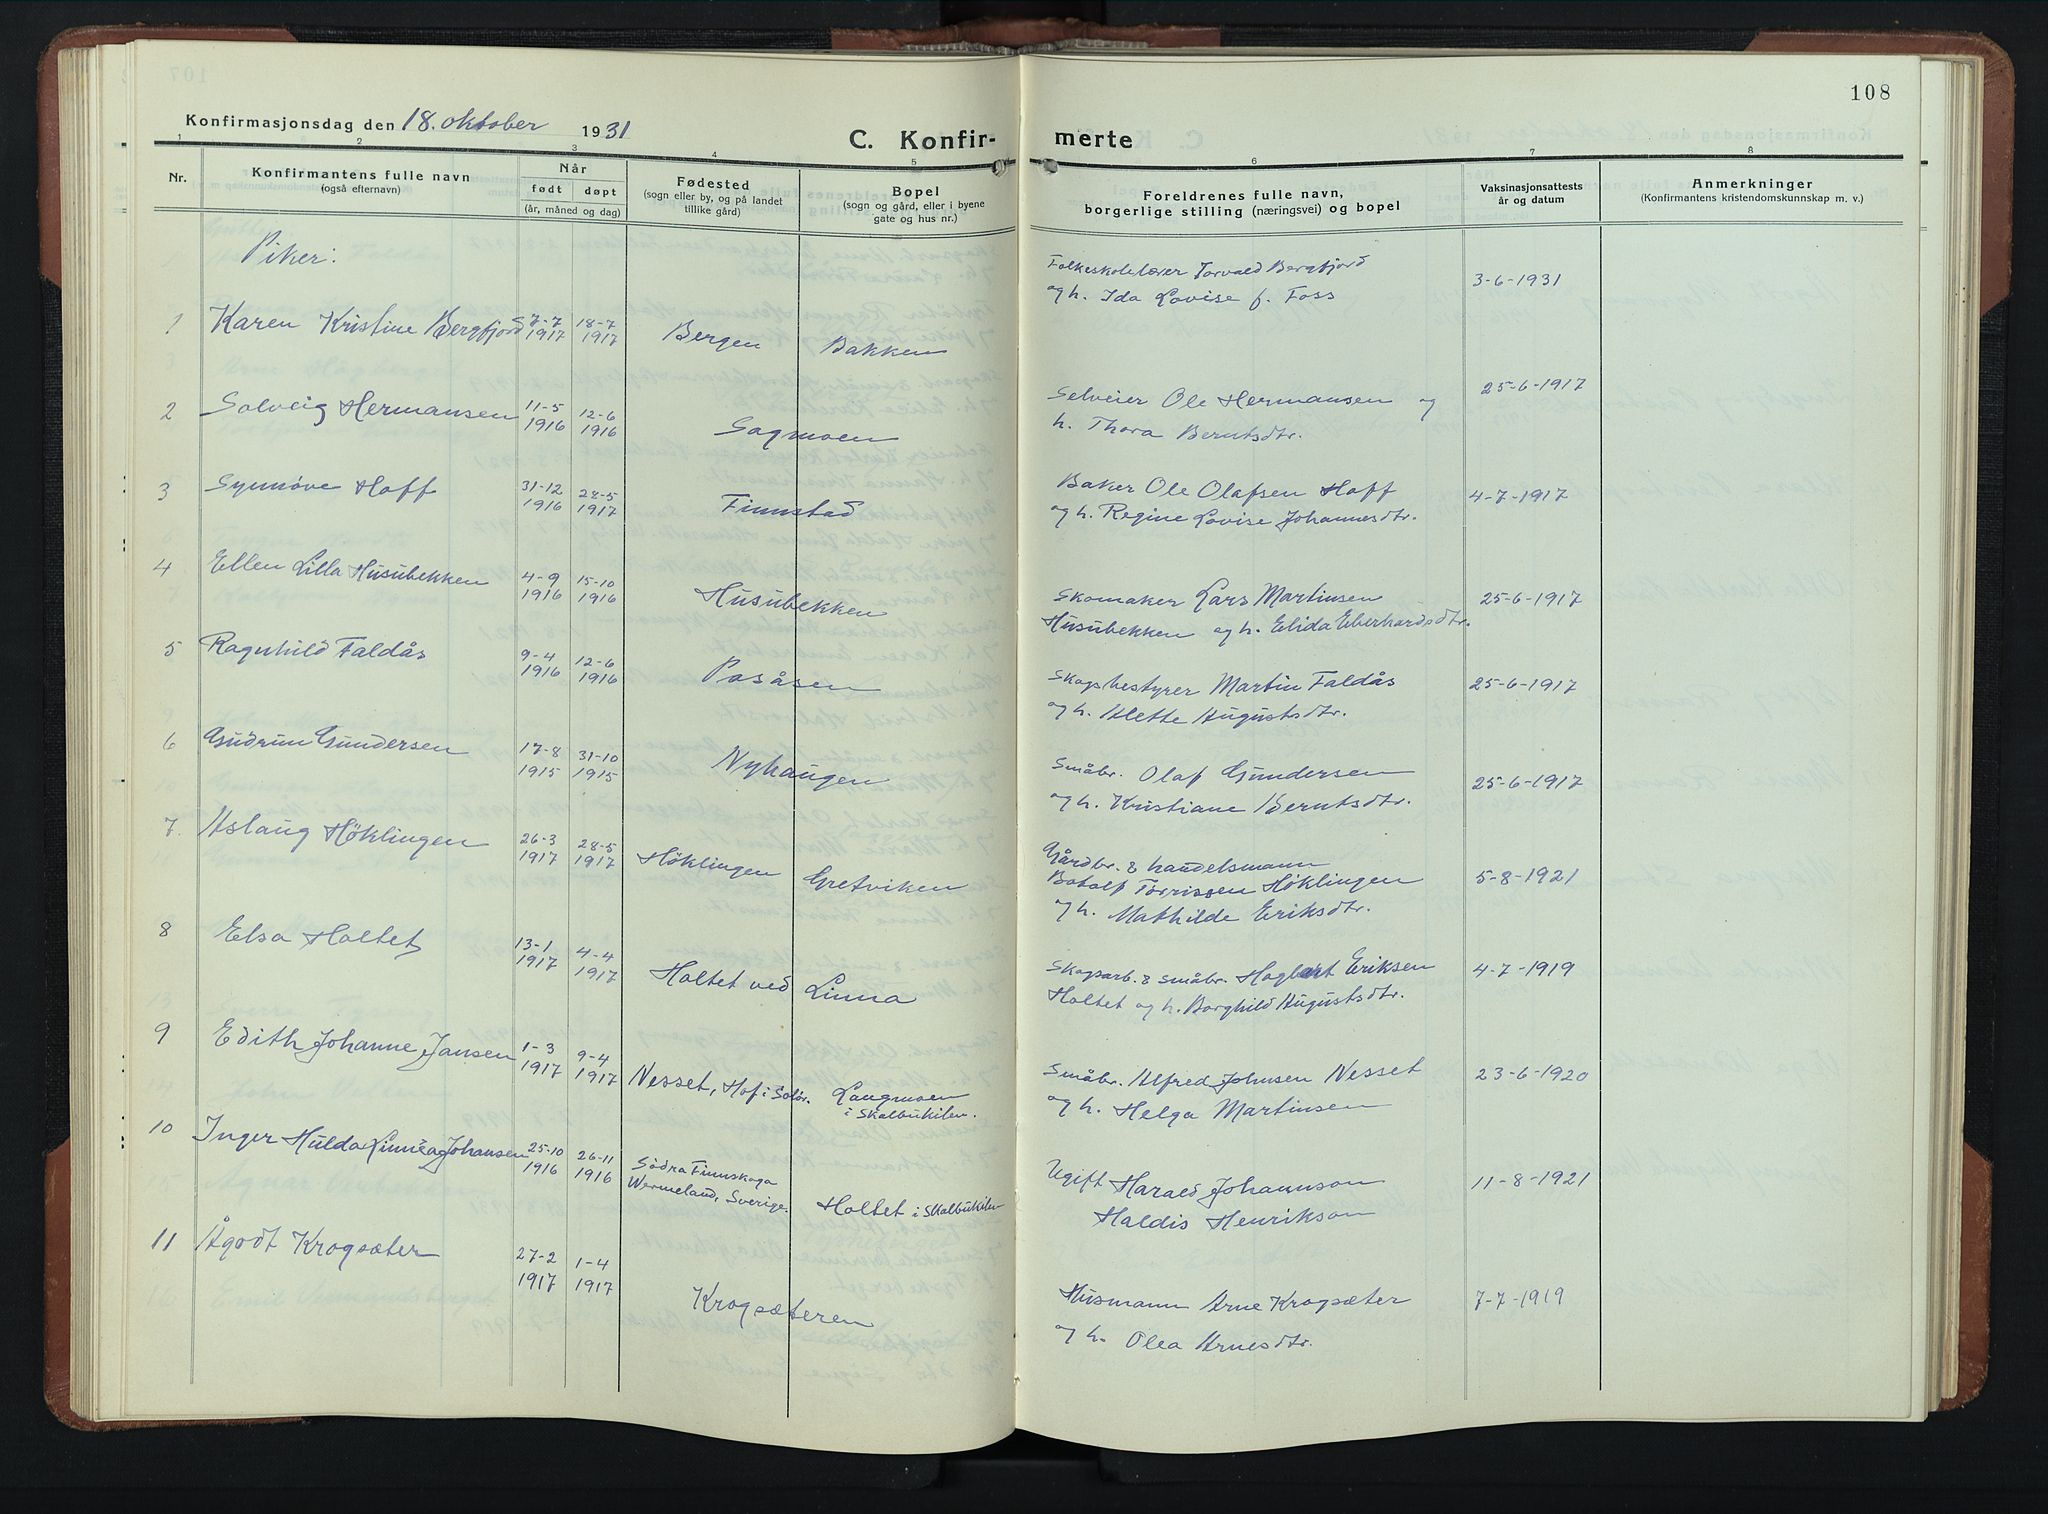 108
Konfirmasjonsdag den 18. oktober 1931
C. Konfir- merte
1 2 3 4 5 6 7 8
Nr.
Konfirmantens fulle navn
(også efternavn)
Når
født døpt
(år, måned og dag)
Fødested
(sogn eller by, og på landet
tillike gård)
Bopel
(sogn og gård, eller i byene
gate og hus nr.)
Foreldrenes fulle navn,
borgerlige stilling (næringsvei) og bopel
Vaksinasjonsattests
år og datum
Anmerkninger
(Konfirmantens kristendomskunnskap m. v.)
Piker:
Folkeskolelærer Torvald Bergfjord
og h. Ida Lovise f. Foss
3-6-1931
1 Karen Kristine Bergfjord 7-7 1917 18-7 1917 Bergen Bakken
2 Solveig Hermansen 11-5 1916 12-6 1916 Sagmoen
Selveier Ole Hermansen og
h. Thora Berntsdtr.
25-6-1917
3 Synnøve Hoff 31-12 1916 28-5 1917 Finnstad
Baker Ole Olafsen Hoff
og h. Regine Lovise Johannesdtr.
4-7-1917
4 Ellen Lilla Husubekken 4-9 1916 15-10 1916 Husubekken
Skomaker Lars Martinsen
Husubekken og h. Elida Eberhardsdtr.
25-6-1917
5 Ragnhild Faldås 9-4 1916 12-6 1916 Posåsen
Skogbestyrer Martin Faldås
og h. Alette Augustsdtr.
25-6-1917
6 Gudrun Gundersen 17-8 1915 31-10 1915 Nyhaugen
Småbr. Olaf Gundersen
og h. Kristiane Berntsdtr.
25-6-1917
7. Aslaug Höklingen 26-3 1917 28-5 1917 Höklingen Gretviken
Gårdbr. & handelsmann
Botolf Torrissen Höklingen
og h. Mathilde Eriksdtr.
5-8-1921
8 Elsa Holtet 13-1 1917 4-4 1917 Holtet ved Linna
Skogsarb. & småbr. Hagbart Eriksen
Holtet og h. Borghild Augustsdtr.
4-7-1919
9 Edith Johanne Jansen 1-3 1917 9-4 1917 Nesset, Hof i Solör. Langmoen
i Skalbukilen.
Småbr. Alfred Johnsen Nesset
og h. Helga Martinsen
23-6-1920
10 Inger Hulda Linnéa Johansen 25-10 1916 26-11 1916 Södra Finnskoga
Wermeland, Sverige. Holtet i Skalbukilen
Ugift Harald Johannson
Haldis Henrikson
11-8-1921
11 Ågodt Krogsæter 27-2 1917 1-4 1917 Krogsæteren
Husmann Arne Krogsæter
og h. Olea Arnesdtr.
7-7-1919